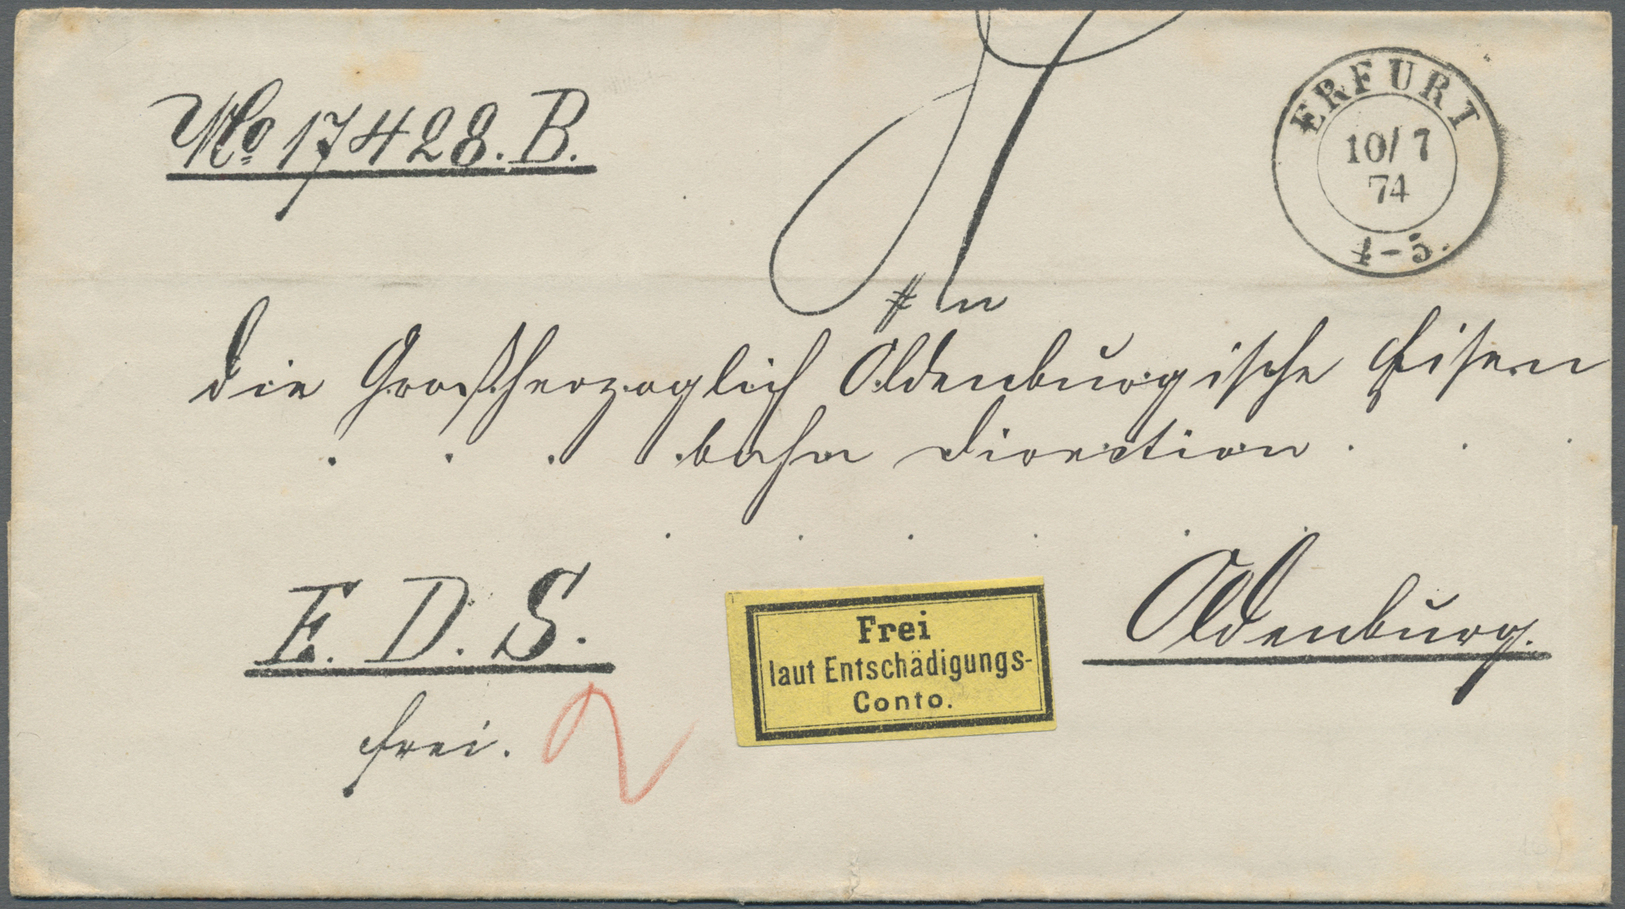 No 17428. B.
ERFURT
10/7
74
4-5.
An
die Großherzoglich Oldenburgische Eisen
bahn Direction.
E. D. S.
frei.
Frei
laut Entschädigungs-
Conto.
Oldenburg.